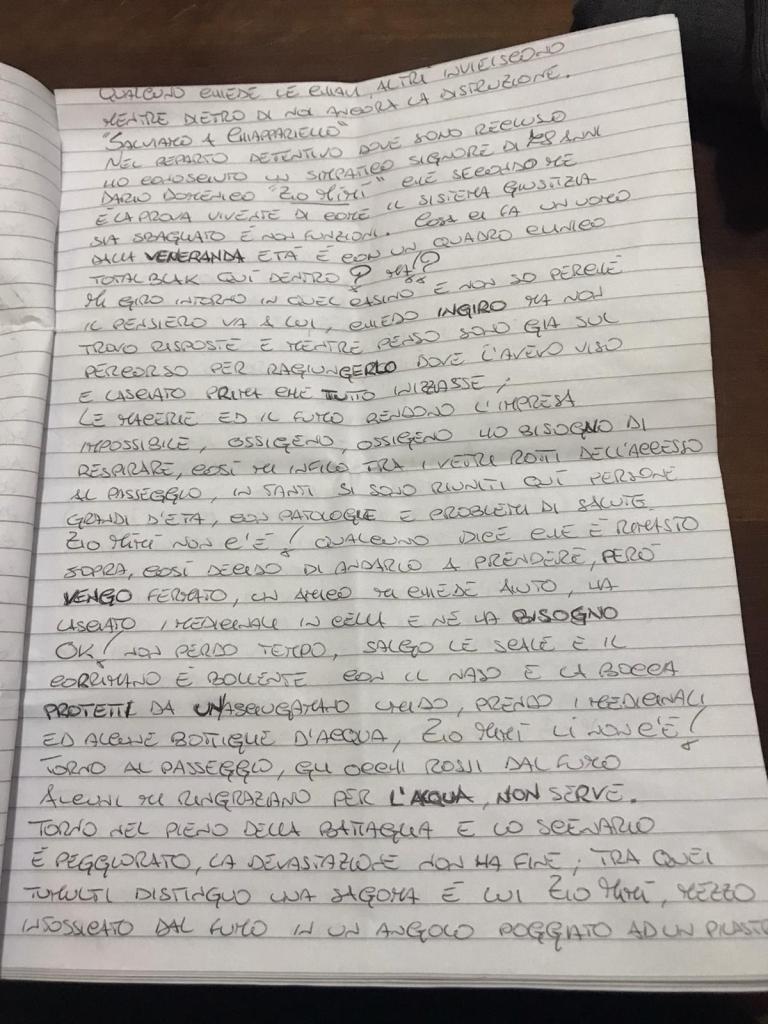 QUALCUNO CHIEDE LE CHIAVI, ALTRI INVEISCONO
MENTRE DIETRO DI NOI ANCORA LA DISTRUZIONE.
"SALVIAMO A CHIAPPARIELLO"
NEL REPARTO DETENTIVO DOVE SONO RECLUSO
HO CONOSCIUTO UN SIMPATICO SIGNORE DI 78 ANNI
DARIO DOMENICO "ZIO MIMÌ" CHE SECONDO ME
È LA PROVA VIVENTE DI COME IL SISTEMA GIUSTIZIA
SIA SBAGLIATO E NON FUNZIONI. COSA CI FA UN UOMO
DALLA VENERANDA ETÀ E CON UN QUADRO CLINICO
TOTAL BLAK QUÌ DENTRO? MA!?
MI GIRO INTORNO IN QUEL CASINO E NON SO PERCHÈ
IL PENSIERO VA A LUI, CHIEDO INGIRO MA NON
TROVO RISPOSTE E MENTRE PENSO SONO GIA SUL
PERCORSO PER RAGIUNGERLO DOVE L'AVEVO VISO
E LASCIATO PRIMA CHE TUTTO INIZZASSE;
LE MACERIE ED IL FUMO RENDONO L'IMPRESA
IMPOSSIBILE, OSSIGENO, OSSIGENO HO BISOGNO DI
RESPIRARE, COSÌ MI INFILO TRA I VETRI ROTTI DELL'ACCESSO
AL PASSEGGIO, IN TANTI SI SONO RIUNITI QUÌ PERSONE
GRANDI D'ETÀ, CON PATOLOGIE E PROBLEMI DI SALUTE.
ZIO MIMÌ NON C'È! QUALCUNO DICE CHE È RIMASTO
SOPRA, COSÌ DECIDO DI ANDARLO A PRENDERE, PERÒ
VENGO FERMATO, UN AMICO MI CHIEDE AIUTO, HA
LASCIATO I MEDICINALI IN CELLA E NE HA BISOGNO
OK! NON PERDO TEMPO, SALGO LE SCALE E IL
CORRIMANO È BOLLENTE CON IL NASO E LA BOCCA
PROTETTI DA UN'ASCIUGAMANO UMIDO, PRENDO I MEDICINALI
ED ALCUNE BOTTIGLIE D'ACQUA, ZIO MIMÌ LI NON C'È!
TORNO AL PASSEGGIO, GLI OCCHI ROSSI DAL FUMO
ALCUNI MI RINGRAZIANO PER L'ACQUA, NON SERVE.
TORNO NEL PIENO DELLA BATTAGLIA E LO SCENARIO
È PEGGIORATO, LA DEVASTAZIONE NON HA FINE; TRA QUEI
TUMULTI DISTINGUO UNA SAGOMA È LUI ZIO MIMÌ, MEZZO
INTOSSICATO DAL FUMO IN UN ANGOLO POGGIATO AD UN PILASTO